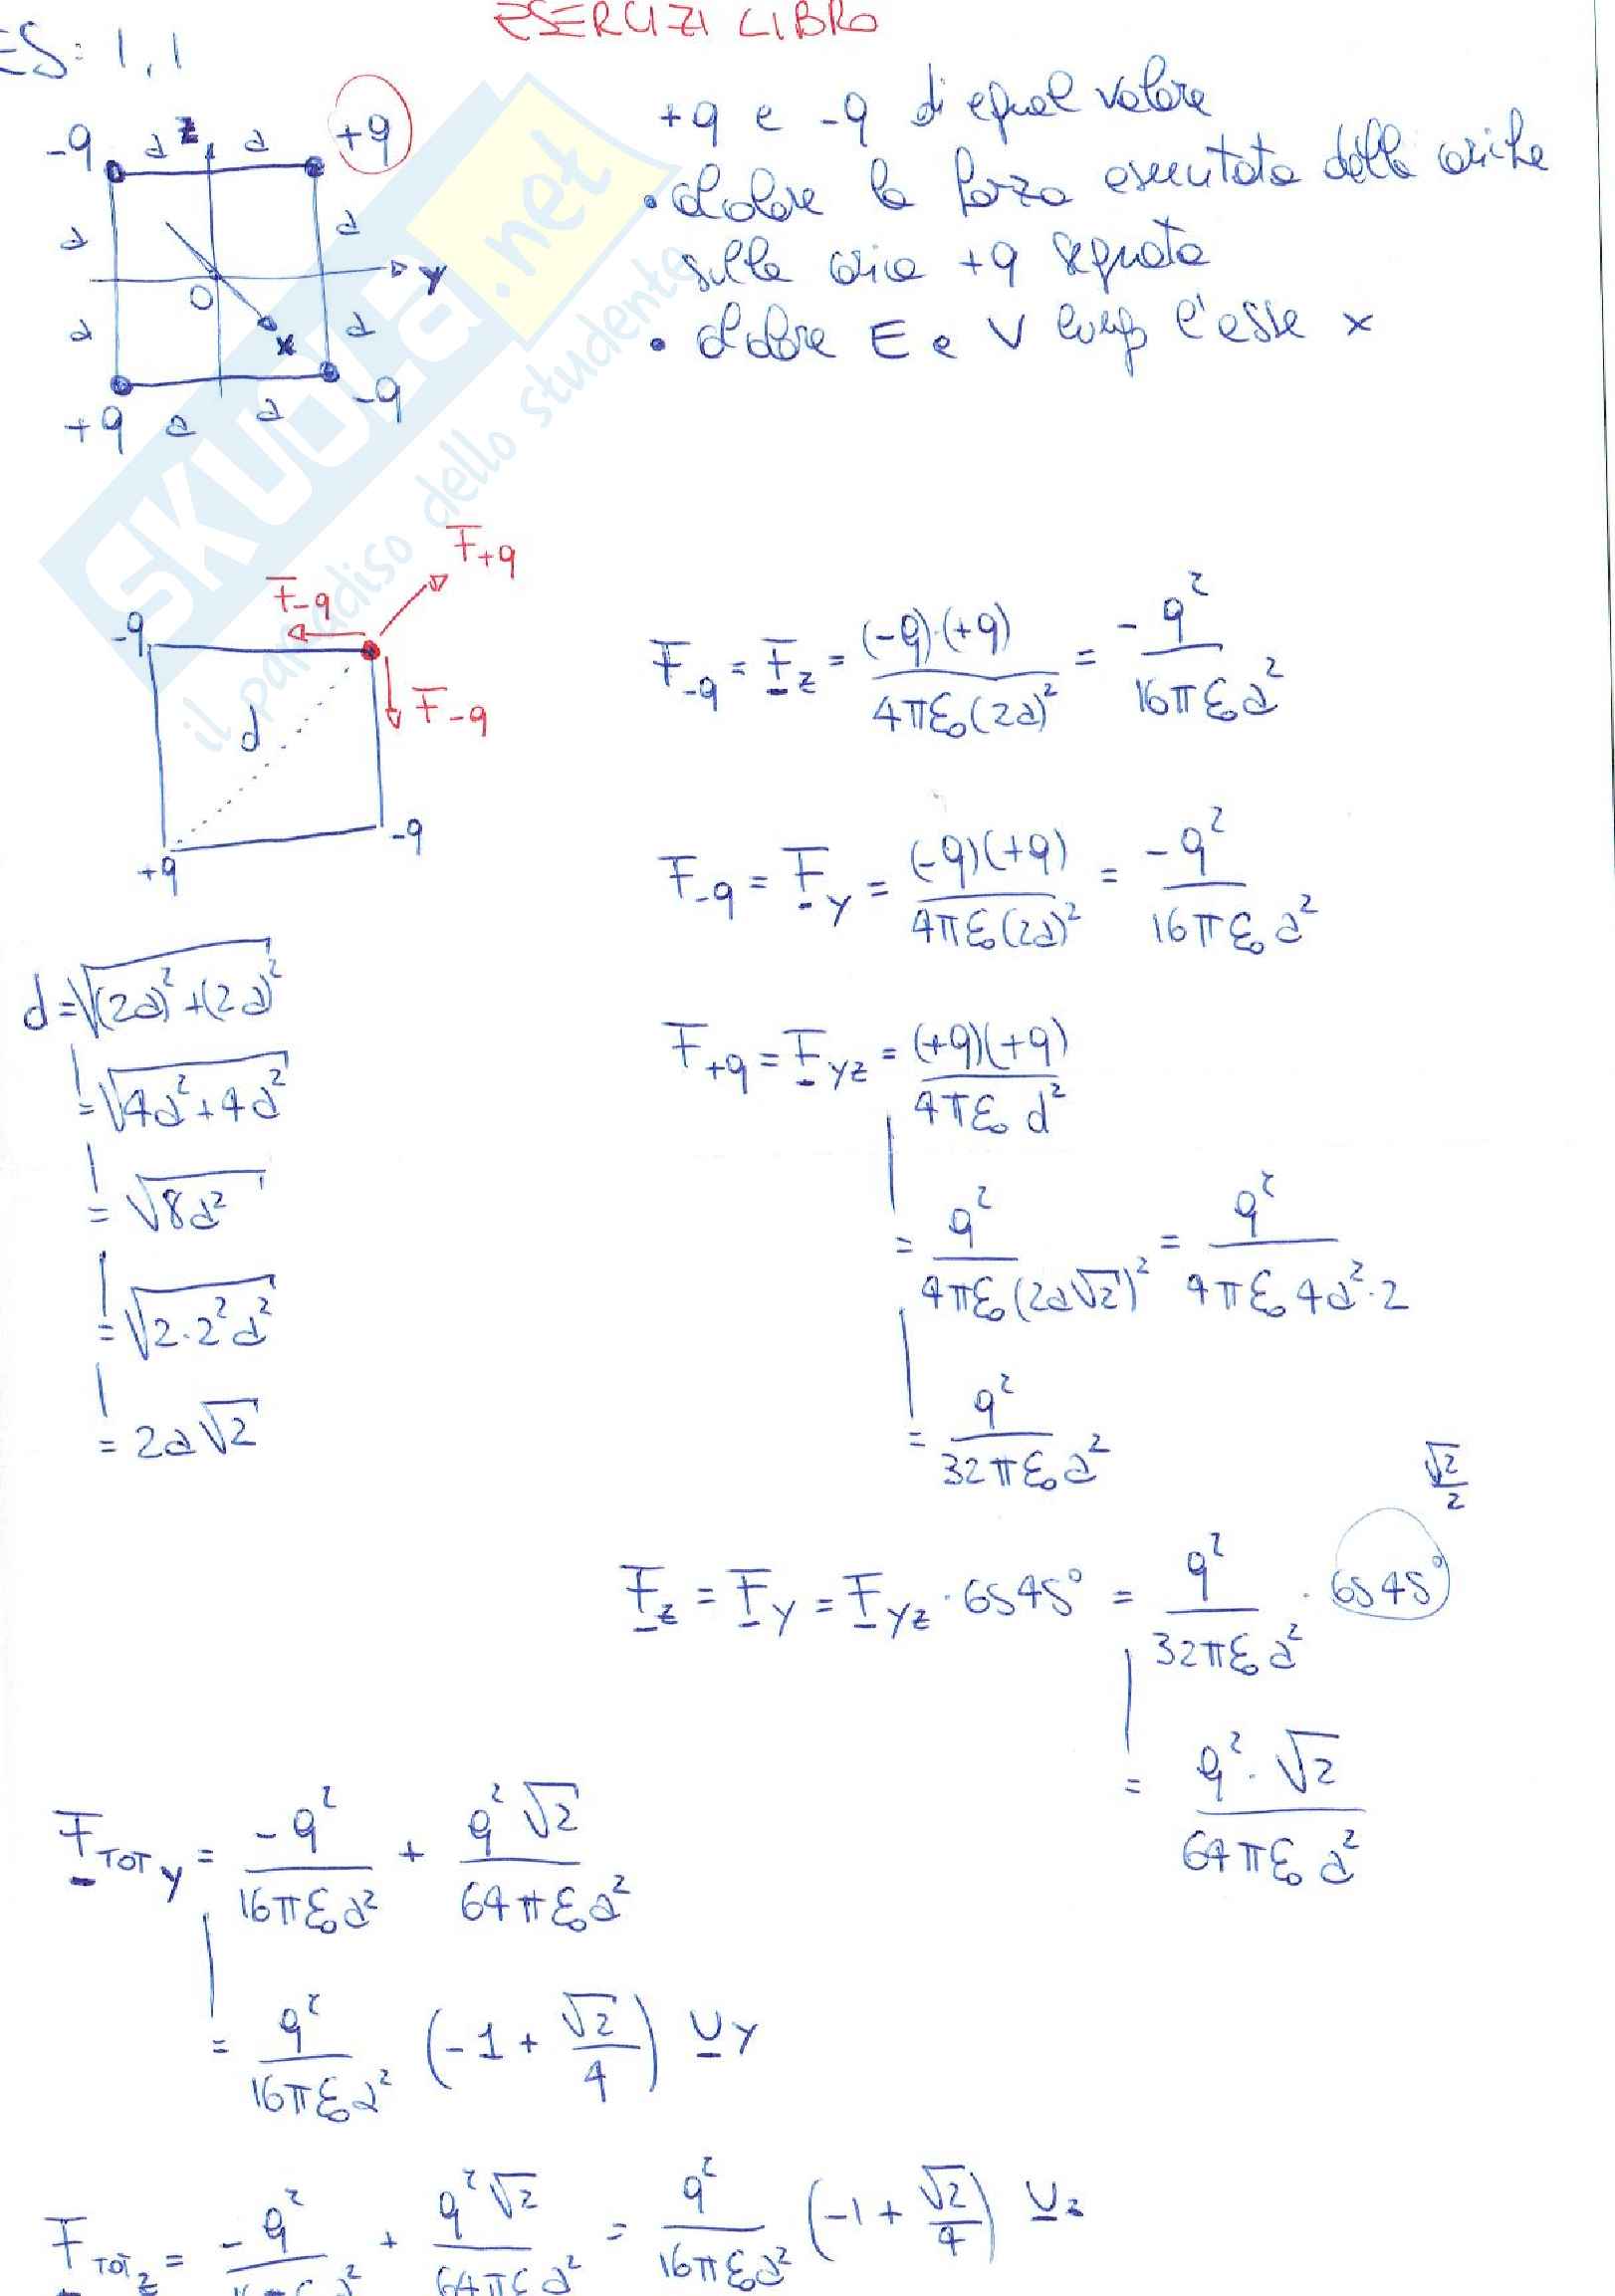 ESERCIZI LIBRO
ES: 1,1
-q a z a +q
a a
O y
a a
x
+q a a -q
+q e -q di egual valore
• calcolare la forza esercitata dalle cariche
sulla carica +q segnata
• calcolare E e V lungo l'asse x
SKUOLA.net
il paradiso dello studente
F+q
F-q
-q
F-q
d
+q -q
F-q = Fz = (-q)·(+q) / 4πε₀(2a)² = -q² / 16πε₀a²
F-q = Fy = (-q)(+q) / 4πε₀(2a)² = -q² / 16πε₀a²
d = √(2a)² + (2a)²
= √4a² + 4a²
= √8a²
= √2·2²a²
= 2a√2
F+q = Fyz = (+q)(+q) / 4πε₀ d²
= q² / 4πε₀(2a√2)² = q² / 4πε₀ 4a²·2
= q² / 32πε₀a²
√2 / 2
Fz = Fy = Fyz · cos45° = q² / 32πε₀a² · cos45°
= q²·√2 / 64πε₀a²
FTOTy = -q² / 16πε₀a² + q²√2 / 64πε₀a²
= q² / 16πε₀a² (-1 + √2/4) Uy
FTOTz = -q² / 16πε₀a² + q²√2 / 64πε₀a² = q² / 16πε₀a² (-1 + √2/4) Uz